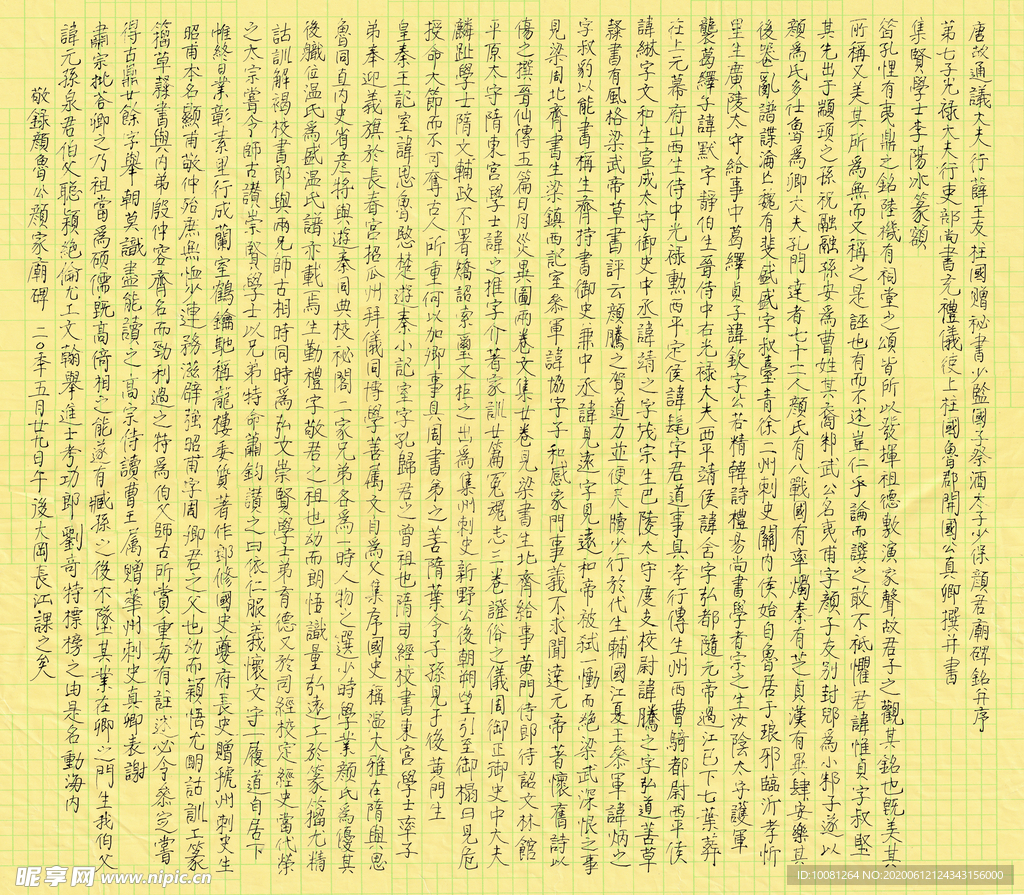 唐故通議大夫行薛王友柱國贈祕書少監國子祭酒太子少保顔君廟碑銘并序
第七子光禄大夫行吏部尚書充禮儀使上柱國魯郡開國公真卿撰并書
集賢學士李陽冰篆額
昔孔悝有夷鼎之銘陸機有祠堂之頌皆所以發揮祖德敷演家聲故君子之觀其銘也旣美其
所稱又美其所爲無而又稱之是誣也有而不述豈仁乎論而譔之敢不祗懼君諱惟貞字叔堅
其先出于顓頊之孫祝融融孫安爲曹姓其裔邾武公名夷甫字顔子友别封郳爲小邾子遂以
顔爲氏多仕魯爲卿大夫孔門達者七十二人顔氏有八戰國有率燭秦有芝貞漢有異肆安樂其
後喪亂譜諜淪亡魏有斐盛盛字叔臺青徐二州刺史關内侯始自魯居于琅邪臨沂孝悌
里生廣陵太守給事中葛繹貞子諱欽字公若精韓詩禮易尚書學者宗之生汝陰太子護軍
襲葛繹子諱默字静伯生晉侍中右光禄大夫西平靖侯諱含字弘都隨元帝過江已下七葉葬
在上元幕府山西生侍中光禄勳西平定侯諱髦字君道事具孝行傳生州西曹騎都尉西平侯
諱綝字文和生宣成太守御史中丞諱靖之字茂宗生巴陵太守度支校尉諱騰之字弘道善草
隸書有風格梁武帝草書評云顔騰之賀道力並便尺牘少行於代生輔國江夏王叅軍諱炳之
字叔豹以能書稱生齊持書御史兼中丞諱見遠字見遠和帝被弑一慟而絶梁武深恨之事
見梁周北齊書生梁鎮西記室叅軍諱協字子和感家門事義不求聞達元帝著懷舊詩以
傷之撰晉仙傳五篇日月災異圖兩卷文集廿卷見梁書生北齊給事黄門侍郎待詔文林館
平原太守隋東宫學士諱之推字介著家訓廿篇冤魂志三卷證俗之儀周御正御史中大夫
麟趾學士隋文輔政不署矯詔索璽又拒之出爲集州刺史新野公後朝朔望引至御榻曰見危
授命大節而不可奪古人所重何以加卿事具周書弟之善隋葉令子孫見于後黄門生
皇秦王記室諱思魯愍楚遊秦小記室字孔歸君之曾祖也隋司經校書東宫學士率子
弟奉迎義旗於長春宫招瓜州拜儀同博學善屬文自爲父集序國史稱温大雅在隋與思
魯同直内史省彦將與遊秦同典校祕閣二家兄弟各爲一時人物之選少時學業顔氏爲優其
後職位温氏爲盛温氏譜亦載焉生勤禮字敬君之祖也幼而朗悟識量弘遠工於篆籀尤精
詁訓解褐校書郎與兩兄師古相時同時爲弘文崇賢學士弟育德又於司經校定經史當代榮
之太宗嘗令師古讃崇賢學士以兄弟特命蕭鈞讃之曰依仁服義懷文守一履道自居下
帷終日業彰素里行成蘭室鶴鑰馳稱龍樓委質著作郎修國史夔府長史贈虢州刺史生
昭甫本名顯甫敬仲殆庶無恤少連務滋辟强昭甫字周卿君之父也幼而穎悟尤明詁訓工篆
籀草隸書與内弟殷仲容齊名而勁利過之特爲伯父師古所賞重每有註述必令叅定嘗
得古鼎廿餘字舉朝莫識盡能讀之高宗侍讀曹王屬贈華州刺史真卿表謝
肅宗批荅卿之乃祖當爲碩儒旣高倚相之能遂有臧孫之後不墜其業在卿之門生我伯父
諱元孫泉君伯父聰穎絶倫尤工文翰舉進士考功郎劉奇特標榜之由是名動海内
敬録顔魯公顔家廟碑 二〇年五月廿九日午後大岡長江課之矣
昵享网 www.nipic.cn
ID:10081264 NO:20200612124343156000